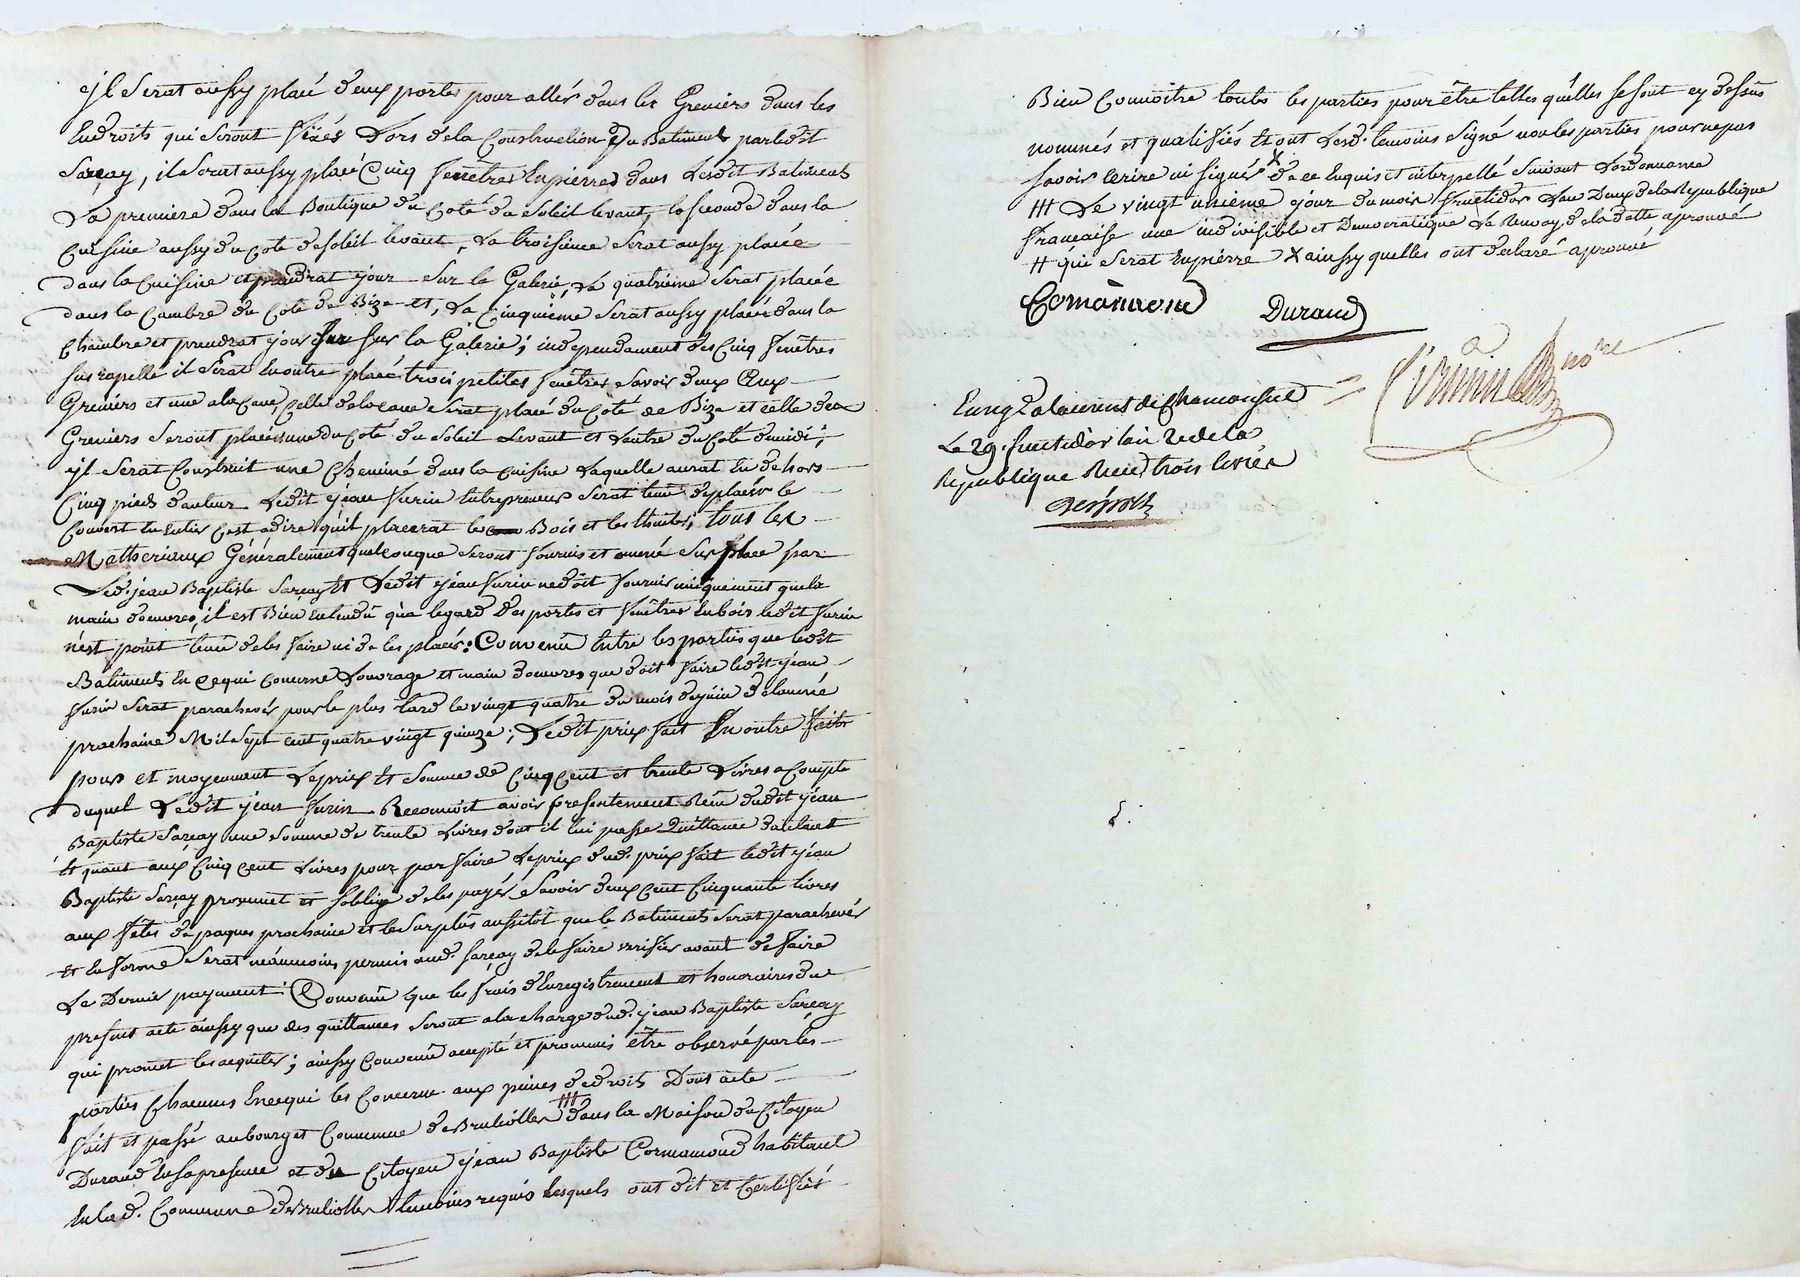 yl Serat aussy placé deux portes pour aller dans les Greniers dans les
Endroits qui Seront fixés Lors dela Construction Du Batiment par ledit
Sarçay, il Serat aussy placé Cinq fenêtres En pierre dans Ledit Batiment
La premiere dans la Boutique du Coté du Soleil levant, la Seconde dans la
Cuisine aussy du Coté de Soleil levant, La troisieme Serat aussy placée
dans la Cuisine et prendrat your Sur la Galerie, La quatrième Serat placée
dans la Cambre du Coté de Bize et, La Cinquieme Serat aussy placée dans la
Chambre et prendrat your Sur la Galerie; independament des Cinq fenêtres
Sus rapellé il Serat En outre placé trois petites fenêtres Savoir deux Aux
Greniers et une ala Cave, Celle dela cave Serat placé du Coté de Bize et celle des
Greniers Seront placées une du Coté du Soleil Levant et Lautre du Coté du midi;
yl Serat Construit une Cheminé dans la Cuisine Laquelle aurat En dehors
Cinq pieds dauteur Ledit yean furin Entrepreneur Serat tenu de placér le
Couvert En Entier Cest adire quil placerat le Bois et les thuiles; tous les
Matheriaux Généralement quelconque Seront fournis et amené Sur place par
Led. jean Baptiste Sarçay Et Ledit yean furin ne doit fournir uniquement que la
main doeuvres, il est Bien Entendu qua legard Des portes et fenêtres En bois ledit furin
n'est point tenu de les faire ni de les placér: Convenu Entre les parties que ledit
Batiment En cequi Concerne Louvrage et main doeuvres que doit faire ledit yean
furin Serat parachever pour le plus tard le vingt quatre du mois de juin de lannée
prochaine Mil Sept cent quatre vingt quinze; Ledit prix fait En outre faits
pour et moyennant Le prix Et Somme de Cinq Cent et trente Livres a Compte
duquel Ledit yean furin Reconnoit avoir presentement Reçu dudit yean
Baptiste Sarçay une Somme de trente Livres dont il lui passe Quittance dautant
Et quant aux Cinq cent Livres pour par faire Le prix dud. prix fait ledit yean
Baptiste Sarçay promet et Soblige de les payér Savoir deux Cent Cinquante livres
aux fêtes de paques prochaine et le Surplus aussitôt que le Batiment Serat parachevér
Et En forme Serat néanmoins permis aud. Sarçay de le faire verifier avant de faire
Le Dernier payment: Convenu que les frais dEnregistrement et honoraires du
present acte aussy que des quittances Seront a la charge dud. yean Baptiste Sarçay
qui promet les aquiter; ainssy Convenu accepté et promis être observé par les
parties Chacunes En cequi les Concerne aux peines de droits Dont acte
fait et passé au bourg et Commune de Brulioles ## dans la Maison du Citoyen
Durand En sa presence et du Citoyen yean Baptiste Commamond habitant
En lad. Commune de Brulioles temoins requis Lesquels ont dit et Certifiér
Bien Connoitre toutes les parties pour être telles qu'elles Se sont cy dessus
nommés et qualifiés Et ont Lesd. temoins Signé non les parties pour ne pas
Savoir Ecrire ni Signér X de ce Enquis et interpellé Suivant Lordonnance
## Le vingt unieme your du mois fructidor Lan Deux dela Republique
francaise une indivisible et Democratique Le Renvoy de la datte aprouvé
# qui Serat En pierre X ainssy quelles ont declaré aprouvé
Comamond Durand
n.re
Enreg.é a laurent de Chamousset
Le 29. fructidor lan 2e de la
Republique Recu trois livres